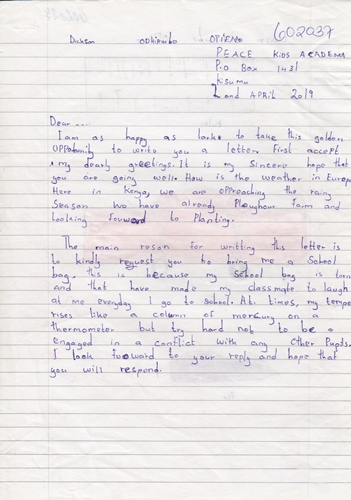 602037
Dickson Odhiambo OTIENO
PEACE KIDS ACADEMY
P.O Box 1431
Kisumu
2nd APRIL 2019
Dear ....
I am as happy as larks to take this golden
opportunity to write you a letter. First accept
my dearly greetings. It is my sincere hope that
you are going well. How is the weather in Europe
Here in Kenya, we are approaching the rainy
Season we have already Ploughour farm and
looking fouward to Planting.
The main reson for writting this letter is
to kindly request you to bring me a School
bag. this is because my School bag is torn
And that have made my classmate to laugh
at me everyday I go to School. At times, my tempe
rises like a column of mercury on a
thermometer but try hard not to be
engaged in a conflict with any other Pupils.
I look foward to your reply and hope that
you will respond.